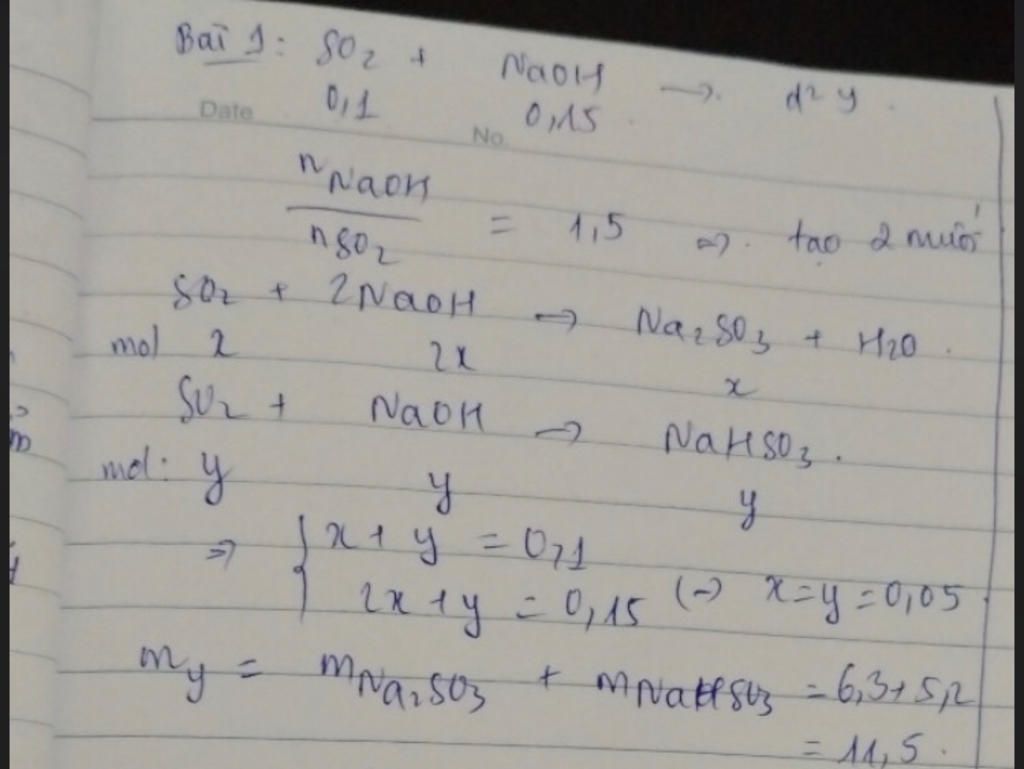 Bài 1: SO2 + NaOH → d² y.
0,1 0,15
Date No.
nNaOH
/ nSO2 = 1,5 => tạo 2 muối
SO2 + 2NaOH → Na2SO3 + H2O.
mol x 2x x
SO2 + NaOH → NaHSO3.
mol: y y y
=> { x + y = 0,1
2x + y = 0,15 (→ x=y=0,05
my = mNa2SO3 + mNaHSO3 = 6,3+5,2
= 11,5.